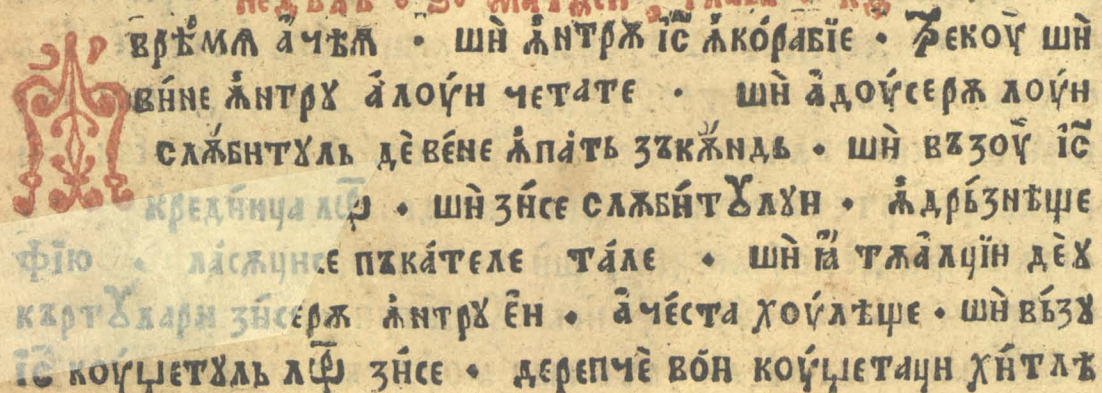 врѣ́мѧ а҆чѣꙗ · шѝ ꙟ҆нтрѫ і҆с҃ ꙟ҆кора́бїе · Трекоу̀ шѝ
ви́не ꙟ҆нтрꙋ а҆лоу́и четате · шѝ а҆доу́серѫ лоуи
слѫ́битꙋль дѐве́не ꙟ҆па́ть зъкѫ́ндь · шѝ възоу̀ і҆с҃
креди́нца лѡ҃р · шѝ зи́се слѫби́тꙋлꙋи · ꙟ҆дръ́знѣще
фі́ю · ла́сѫцисе пъка́теле та́ле · шѝ ꙗ҆̀ тѧа҆лцїи дѐꙋ
къртꙋлари зи́серѫ ꙟ҆нтрꙋ є҆́и · а҆че́ста хоу́лѣще · шѝ въ́зꙋ
і҆с҃ коу́џетꙋль лѡ҃р зи́се · дерепчѐ во́и коу́џетаци хи́тлѣ